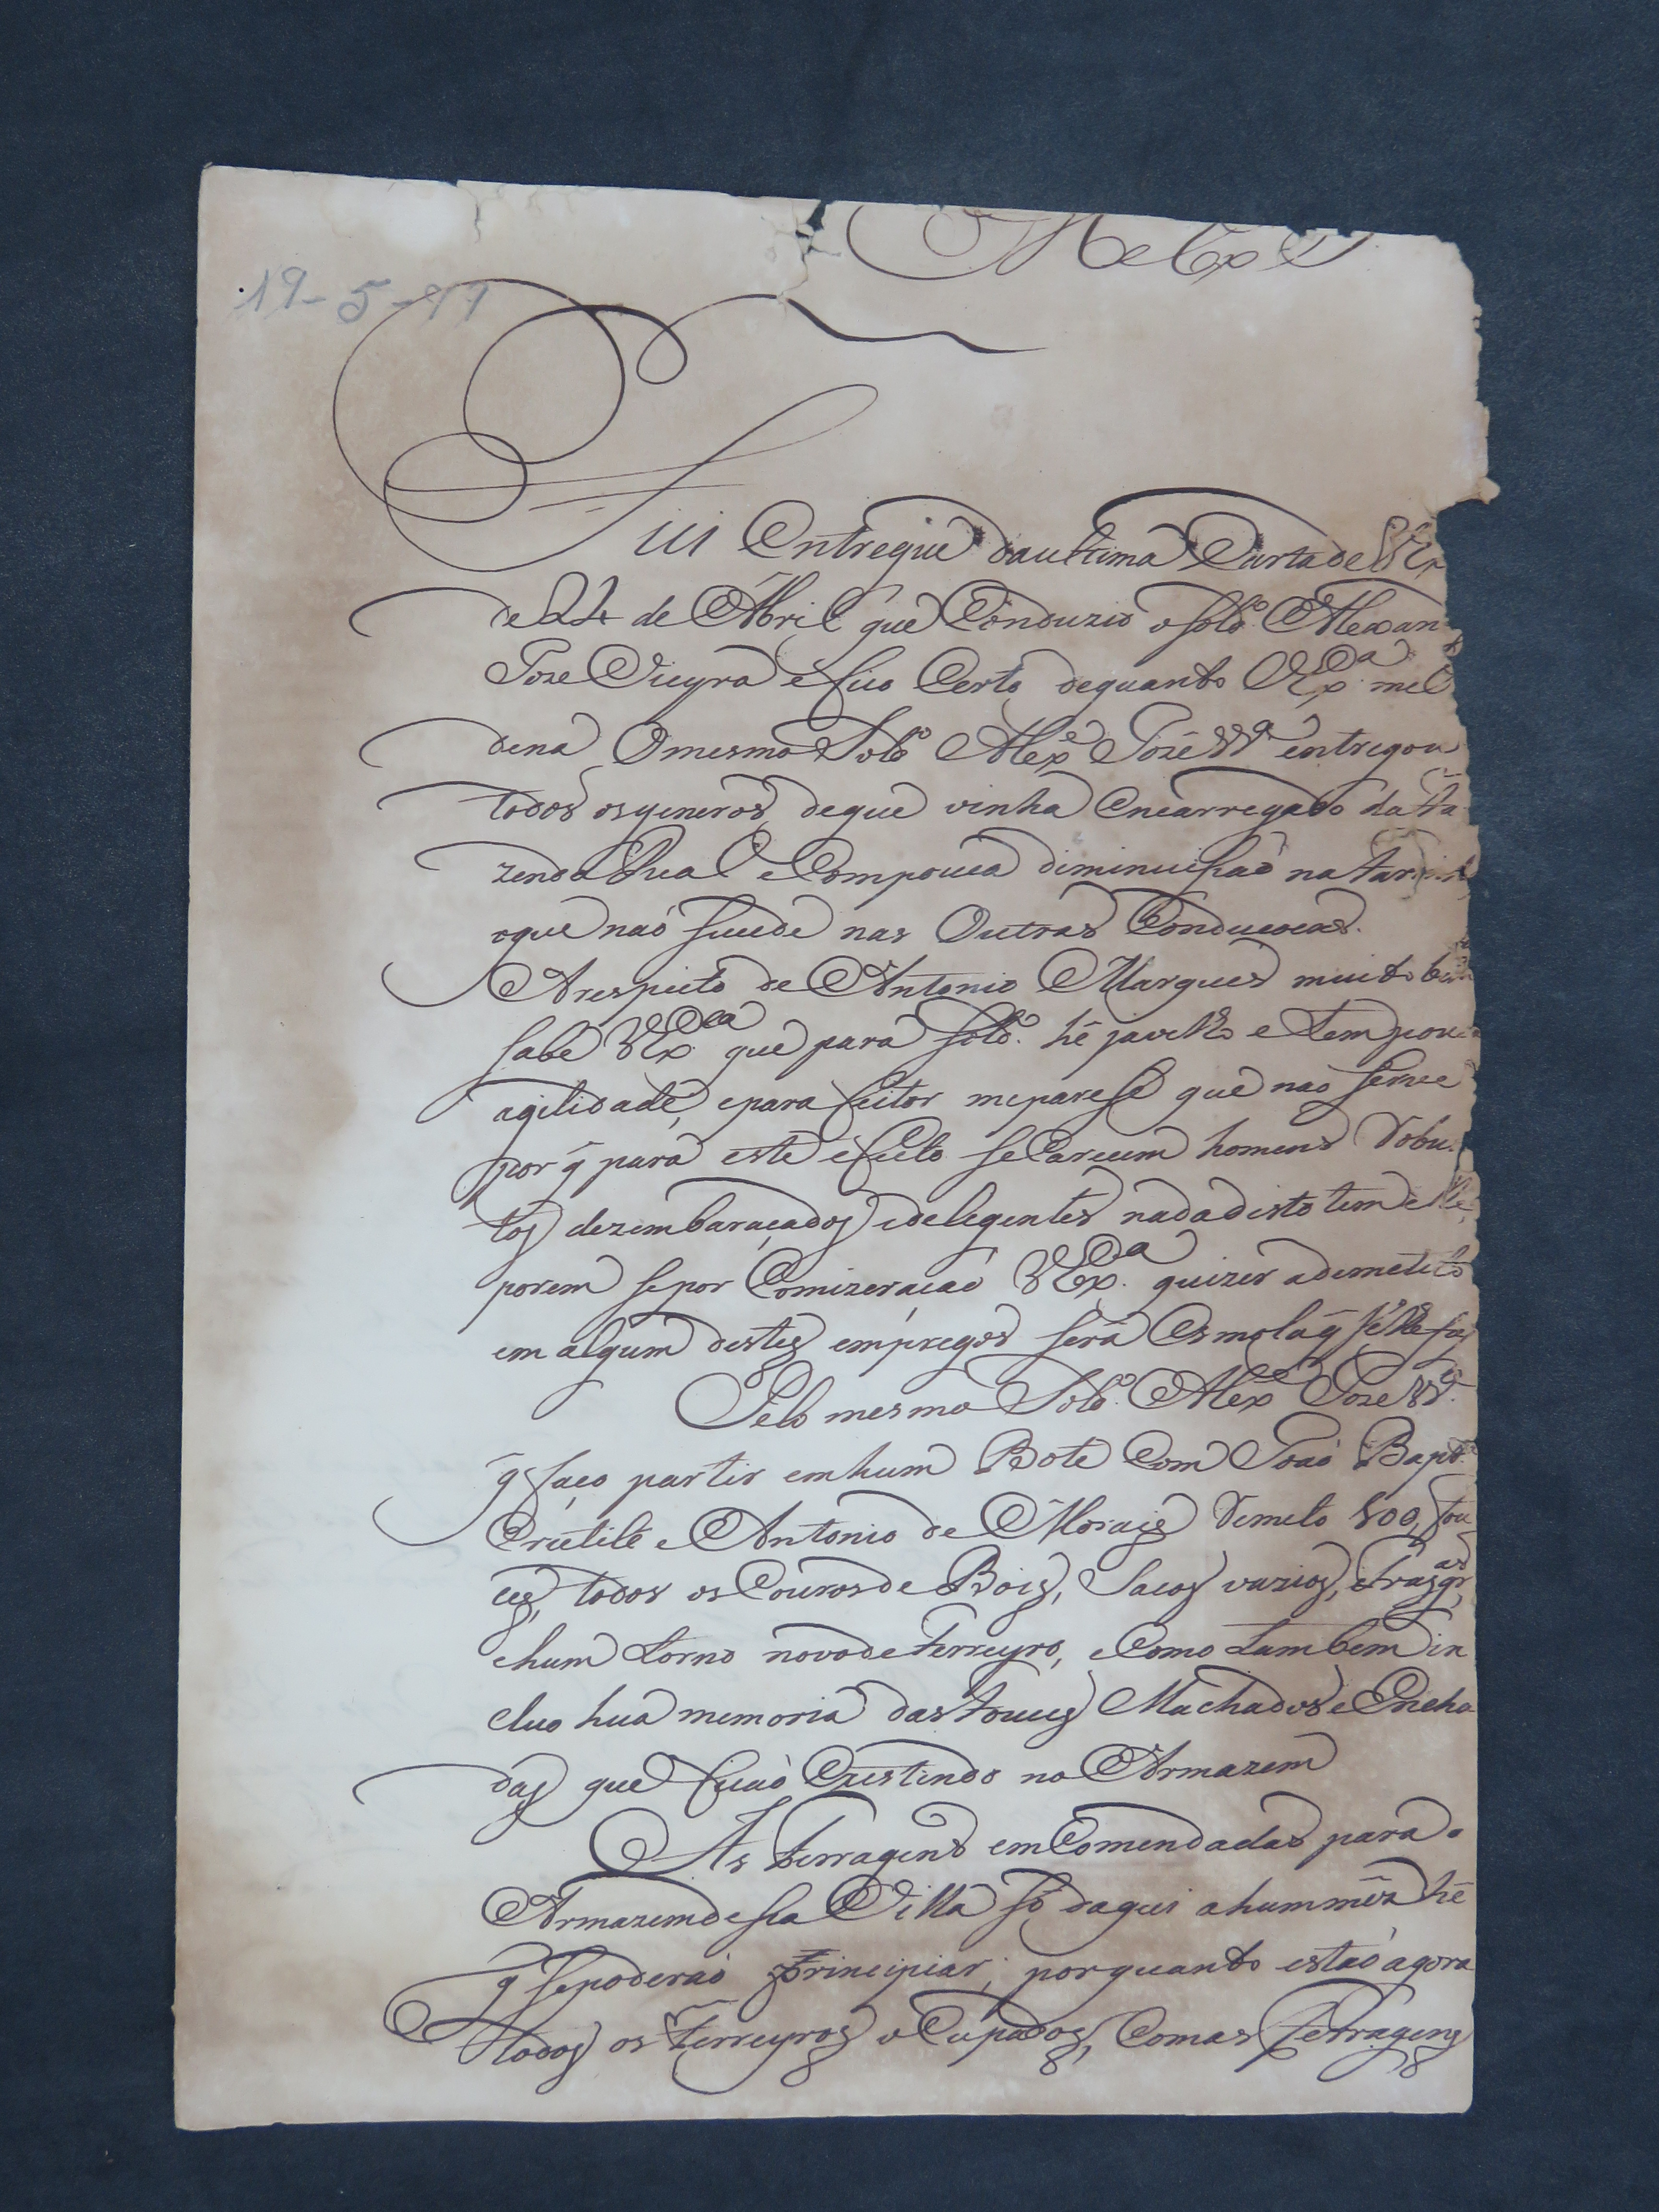 19-5-
Fui Entregue da ultima Carta de VEx
de 24 de Abril que Conduzio o Soldº Alexan
Joze Vieyra e fico Certo de quanto VExª me
dena O mesmo Soldº Alexe Joze Vª entregou
todos os generos de que vinha encarregado da Fa
zenda Rial e Com pouca diminuiçaõ na farin
o que naõ Sucede nas Outras Conducoens.
A respeito de Antonio Marques muito bem
Sabe VExcª que para Soldº hé ja velho e tem pouca
agilidade, e para feitor me parese que naõ Serve
por q̃ para este efeito Se Carecem homens Robus
tos dezembaraçados e deligentes nada disto tem elle,
porem Se por Comizeraçaõ VExcª quizer ademetilo
em algum destes empregos Será Esmola q̃ Se lhe faz
Pelo mesmo Soldº Alexe Joze Vª
q̃ faço partir em hum Bote Com Joaõ Baptª
e Antonio de Moraes Remeto 800, fou
ces, todos os Couros de Bois, Sacos vazios, e frasqrªs,
e hum torno novo de ferreyro, e Como tambem in
cluo hua memoria das fouces Machados e Encha
das que ficaõ Existindo no Armazem
As ferragens emComendadas para o
Armazem desa Villa Só daqui a hum mês hé
q̃ Se poderaõ Principiar, por quanto estaõ agora
todos os ferreyros oCupados, Com as ferragens